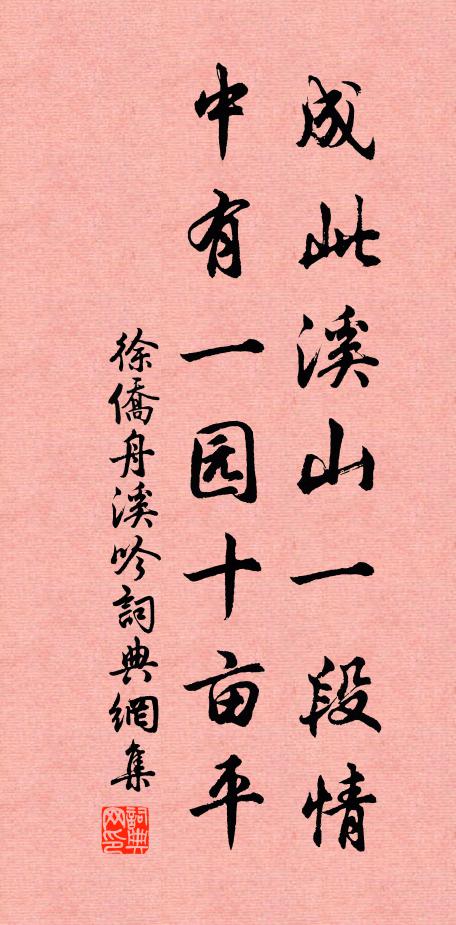 成此溪山一段情
中有一园十亩平
徐僑舟溪吟詞典網集
詞典
网印